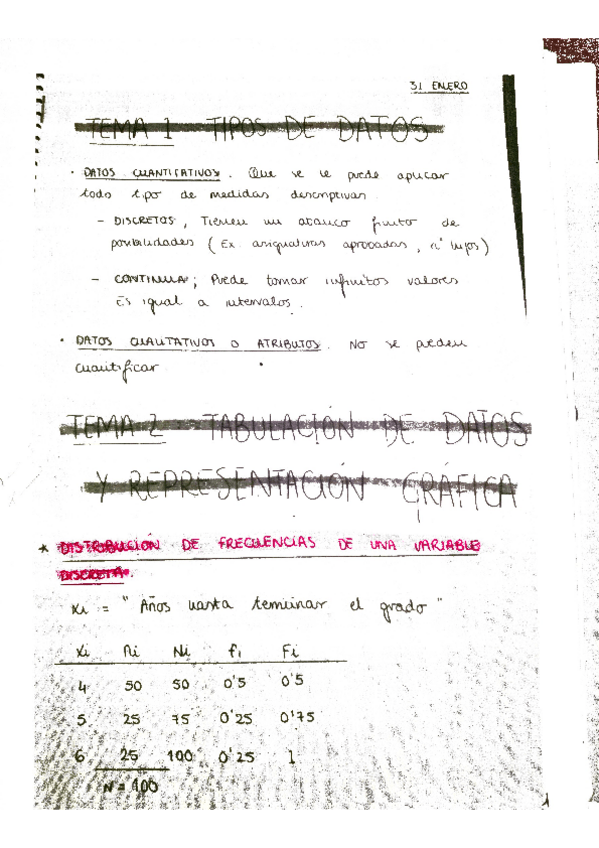 31 ENERO
TEMA 1 TIPOS DE DATOS
· DATOS CUANTITATIVOS. Que se le puede aplicar
todo tipo de medidas descriptivas.
- DISCRETOS, Tienen un abanico finito de
posibilidades (Ex. asignaturas aprobadas, nº hijos)
- CONTINUA; Puede tomar infinitos valores
Es igual a intervalos.
· DATOS CUALITATIVOS O ATRIBUTOS. NO se pueden
cuantificar.
TEMA 2 TABULACIÓN DE DATOS
Y REPRESENTACIÓN GRÁFICA
* DISTRIBUCIÓN DE FRECUENCIAS DE UNA VARIABLE
DISCRETA.
Xi = "Años hasta terminar el grado"
Xi ni Ni fi Fi
4 50 50 0'5 0'5
5 25 75 0'25 0'75
6 25 100 0'25 1
N = 100